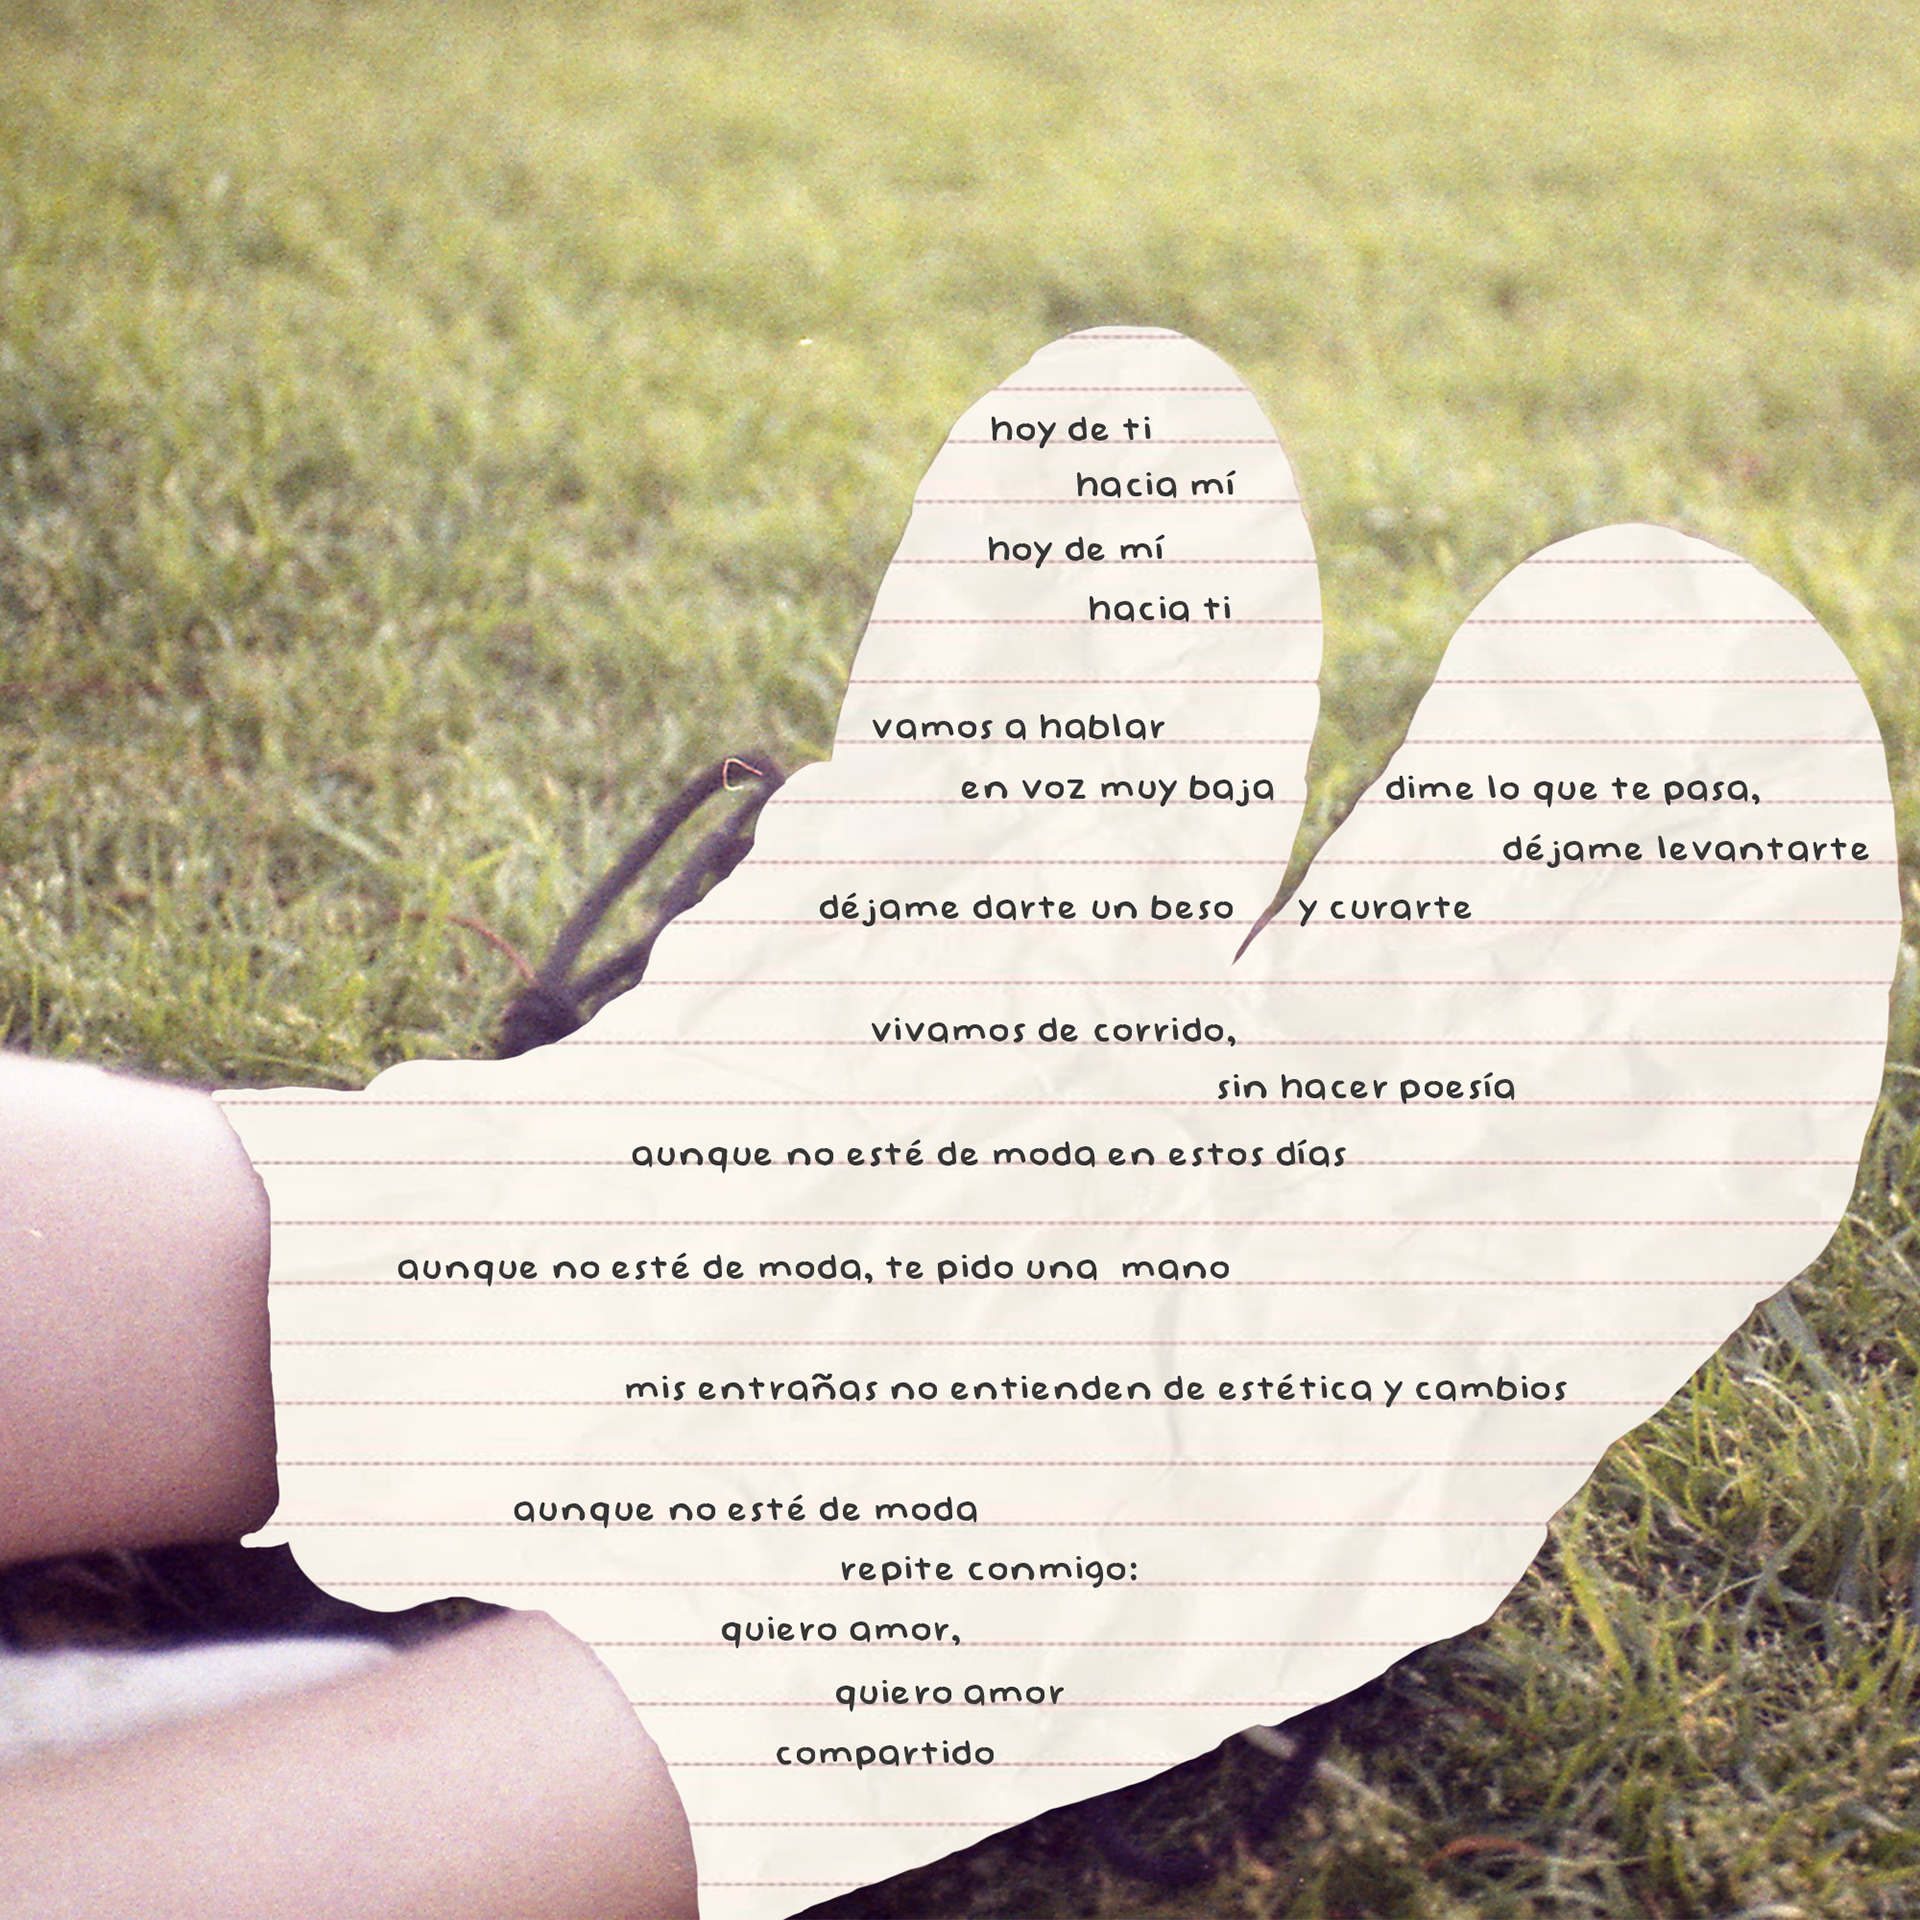 hoy de ti
hacia mí
hoy de mí
hacia ti
vamos a hablar
en voz muy baja
dime lo que te pasa,
déjame levantarte
déjame darte un beso y curarte
vivamos de corrido,
sin hacer poesía
aunque no esté de moda en estos días
aunque no esté de moda, te pido una mano
mis entrañas no entienden de estética y cambios
aunque no esté de moda
repite conmigo:
quiero amor,
quiero amor
compartido